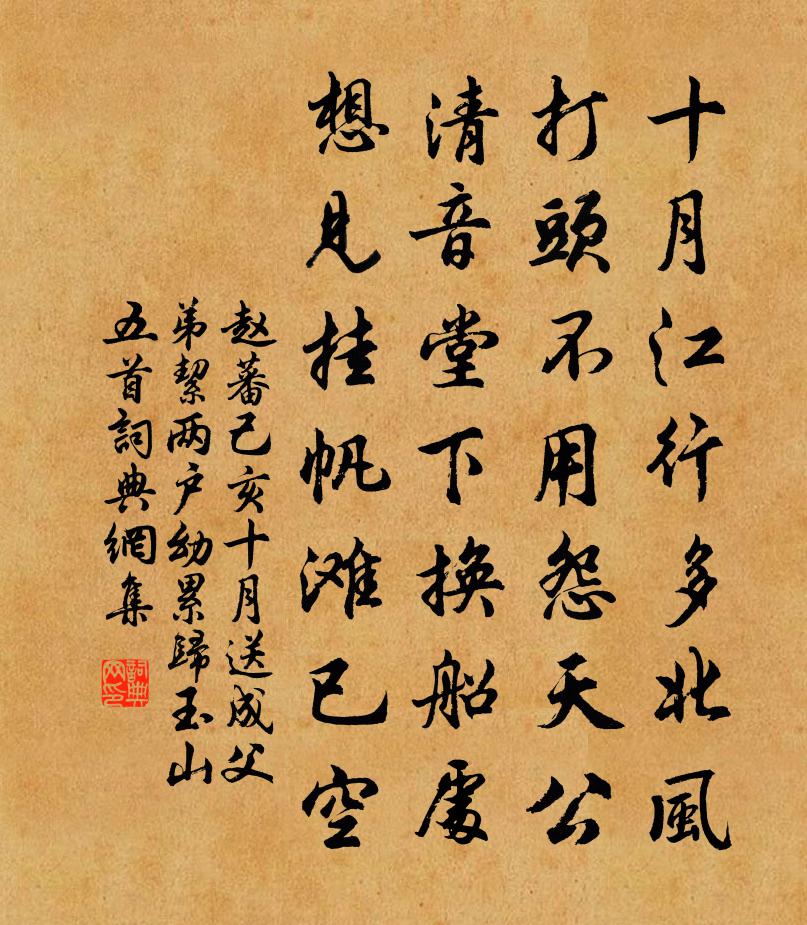 十月江行多北風
打頭不用怨天公
清音堂下換船處
想見挂帆滩已空
赵蕃己亥十月送成父
弟絜两户幼累歸玉山
五首詞典網集
詞典
网印